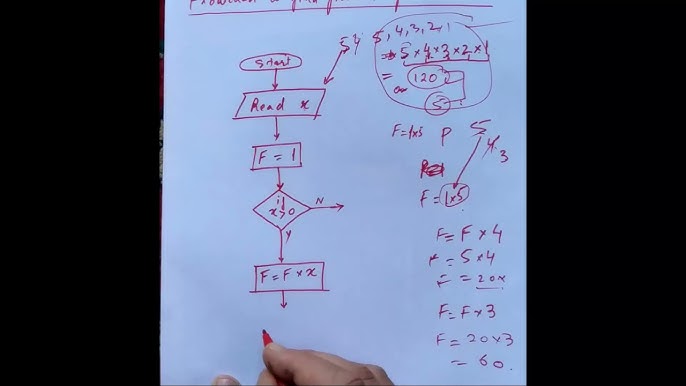 Flowchart to find
Start
Read x
F = 1
if
x>0
N
Y
F = F × x
5 4
5, 4, 3, 2, 1
5 × 4 × 3 × 2 × 1
= 120
5
F = 1×5
5
4 3
F = 1×5
F = F × 4
F = 5 × 4
F = 20
F = F × 3
F = 20 × 3
= 60